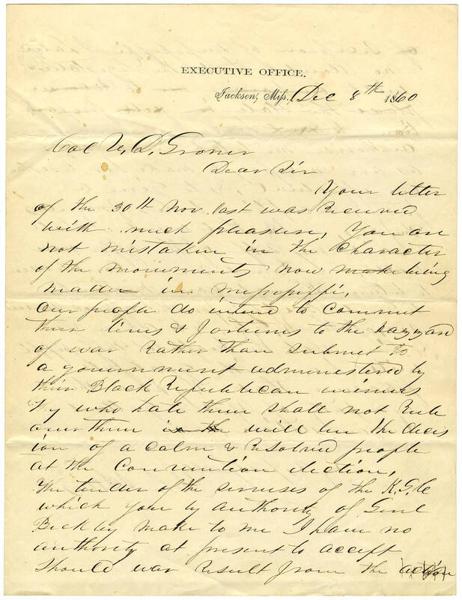 EXECUTIVE OFFICE.
Jackson, Miss. Dec 8th 1860
Col V. D. Groner
Dear Sir
Your letter
of the 30th Nov. last was received
with much pleasure, You are
not mistaken in the character
of the movements now being
made in Mississippi,
Our people do intend to commit
their lives & fortunes to the hazzard
of war rather than submit to
a government administered by
their Black Republican enemies
They who hate them shall not rule
over them will be the decis
ion of a calm & resolved people
at the Convention election,
The tender of the services of the K. G. C
which you by authority of Genl
Bickley make to me I have no
authority at present to accept
Should war result from the action